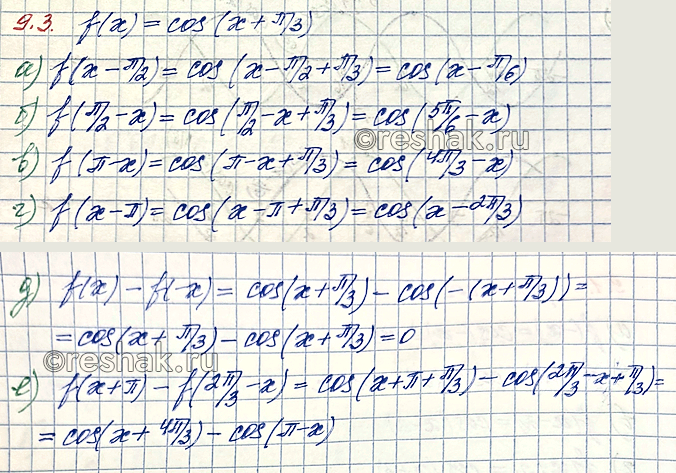 9.3. f(x) = cos(x + π/3)
а) f(x - π/2) = cos(x - π/2 + π/3) = cos(x - π/6)
б) f(π/2 - x) = cos(π/2 - x + π/3) = cos(5π/6 - x)
©reshak.ru
в) f(π - x) = cos(π - x + π/3) = cos(4π/3 - x)
г) f(x - π) = cos(x - π + π/3) = cos(x - 2π/3)
д) f(x) - f(-x) = cos(x + π/3) - cos(-(x + π/3)) =
= cos(x + π/3) - cos(x + π/3) = 0
©reshak.ru
е) f(x + π) - f(2π/3 - x) = cos(x + π + π/3) - cos(2π/3 - x + π/3) =
= cos(x + 4π/3) - cos(π - x)